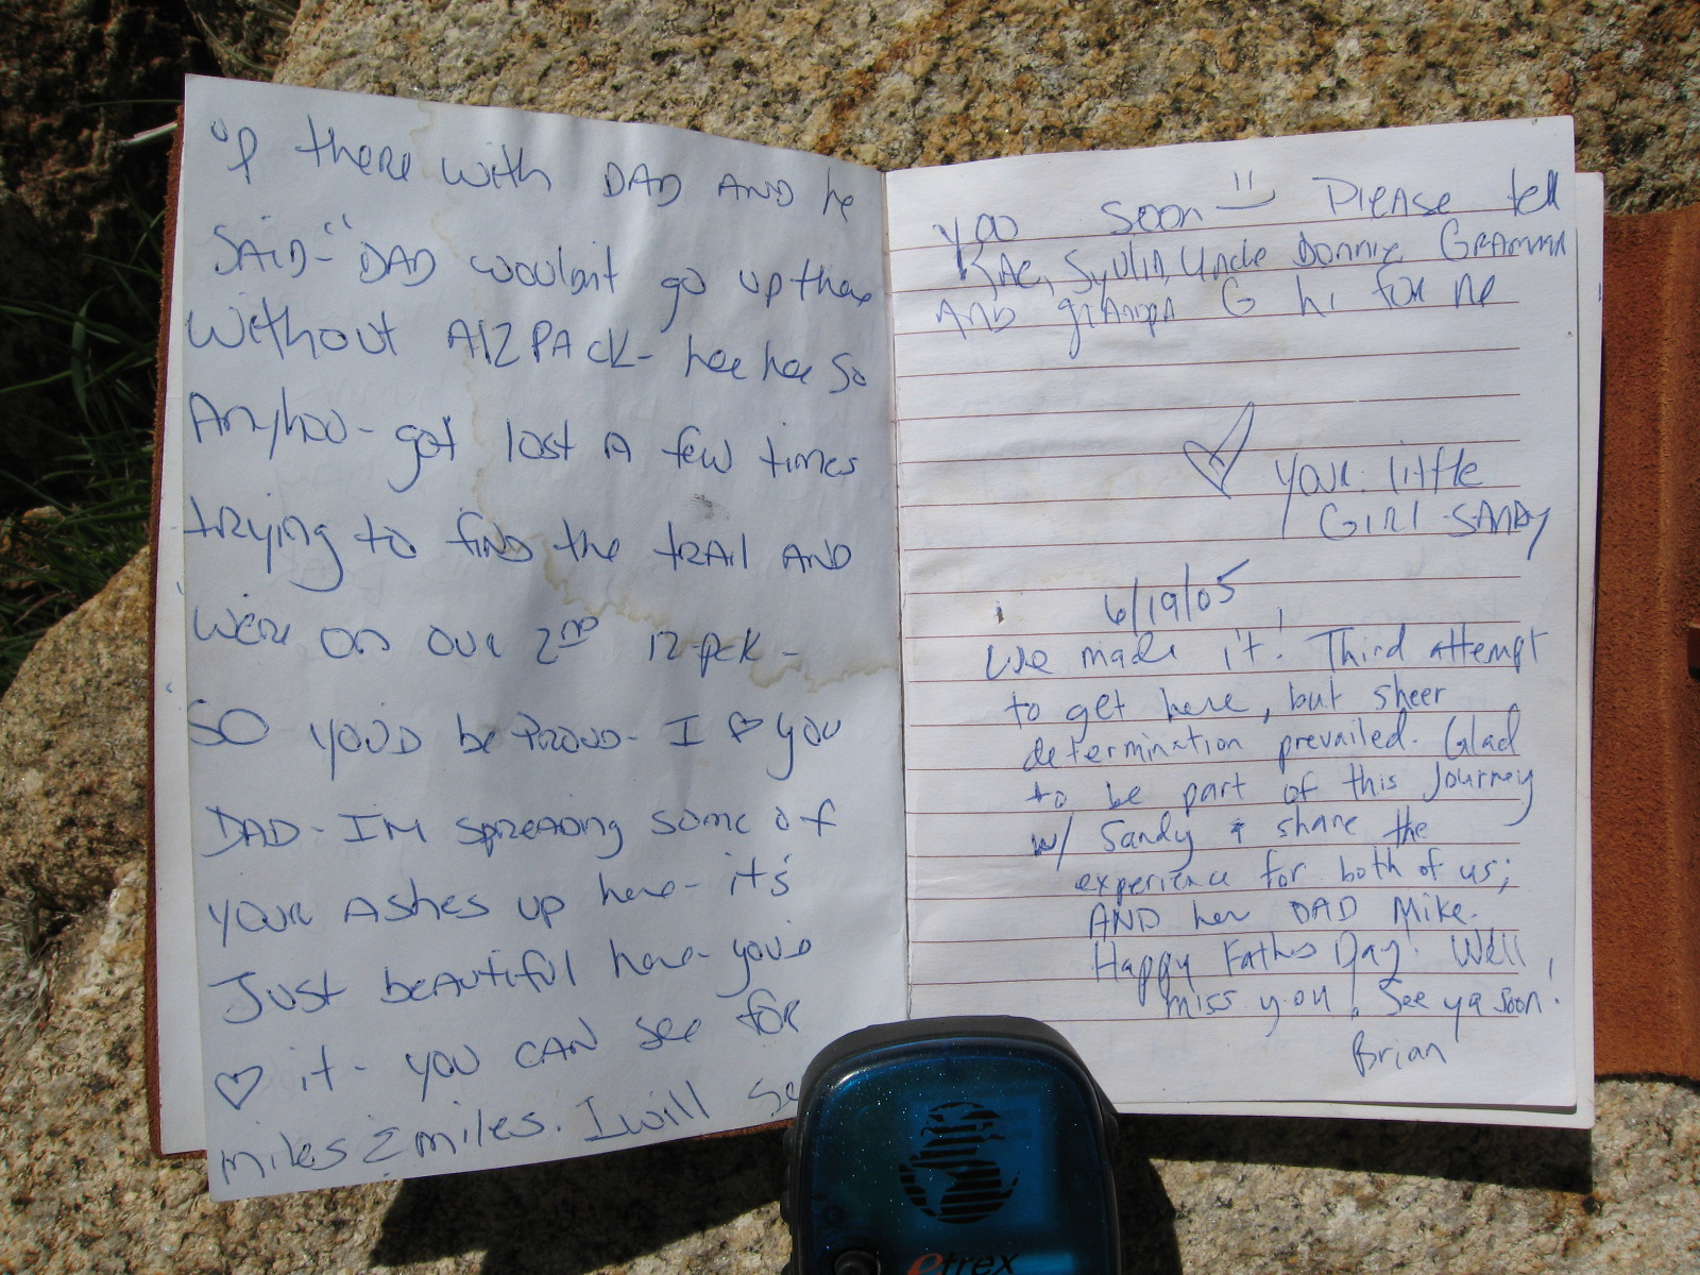 up there with DAD AND he
SAID-"DAD wouldnt go up there
without A 12 PACK- hee hee so
Anyhoo- got lost A few times
trying to find the trail AND
were on our 2ND 12-pck -
SO YOU'D be PROUD- I ♡ you
DAD- I'M spreading some of
YOUR Ashes up here- it's
Just beautiful here- you'd
♡ it- you CAN see for
miles & miles. I will se
you soon Please tell
RAE, Sylvia, Uncle Donnie, GRAMMA
AND grAmpA G hi for me
♡ your little
GIRl SANDY
6/19/05
We made it! Third attempt
to get here, but sheer
determination prevailed. Glad
to be part of this Journey
w/ Sandy & share the
experience for both of us;
AND her DAD Mike.
Happy Fathers Day! We'll
miss you. See ya soon!
Brian
etrex